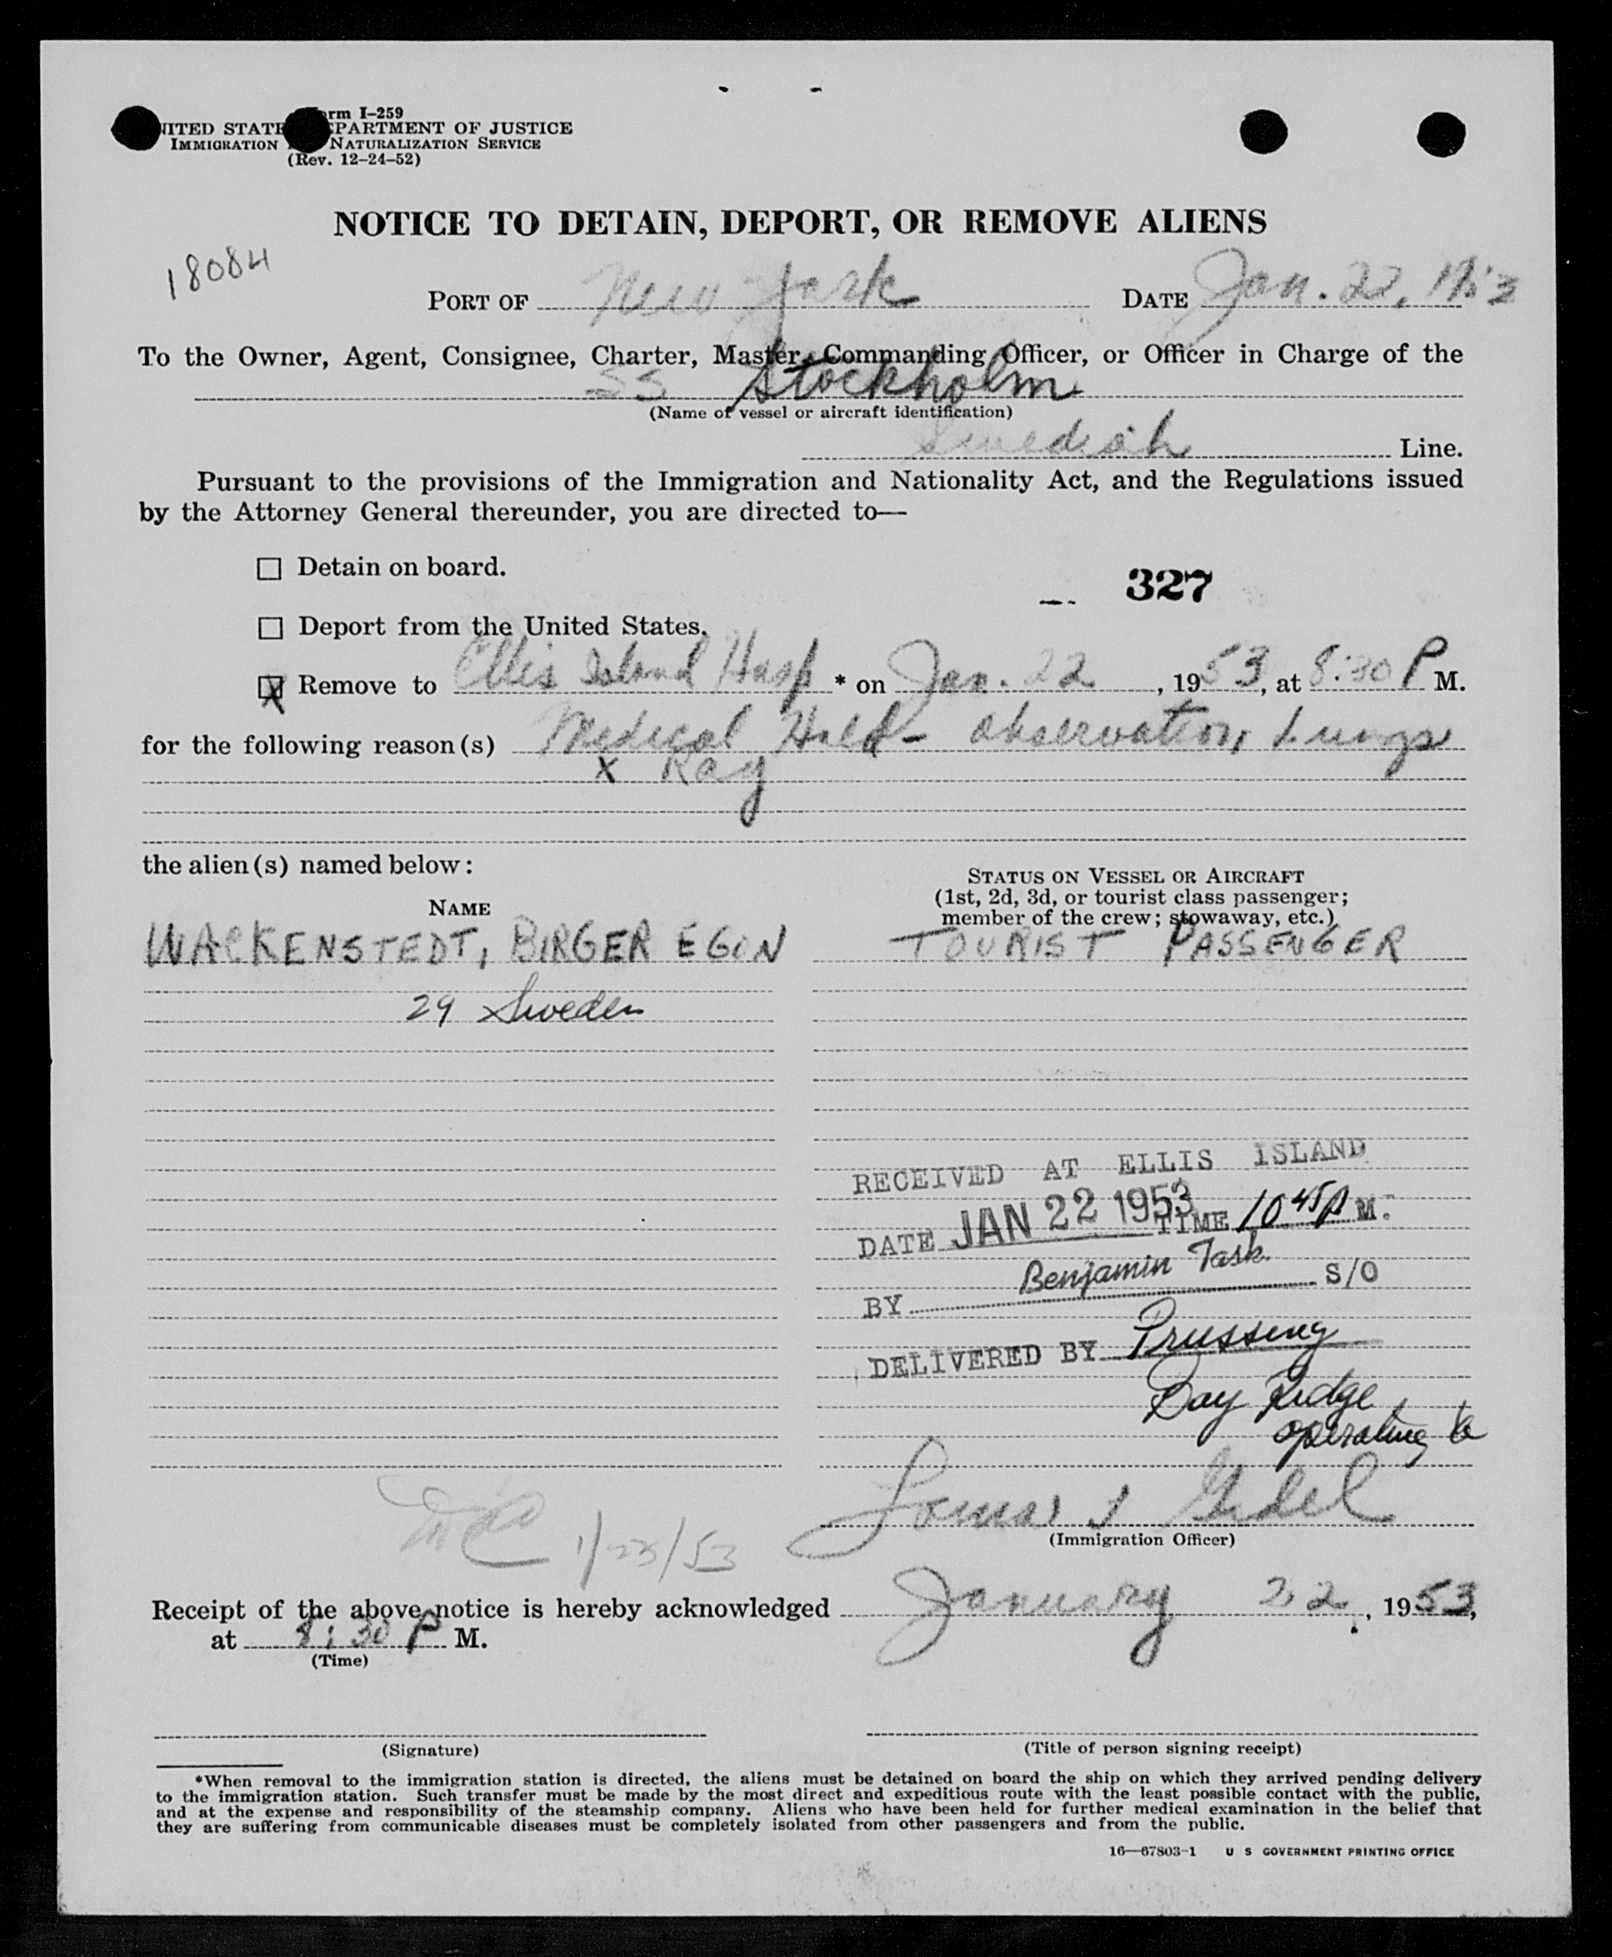 Form I-259
UNITED STATES DEPARTMENT OF JUSTICE
IMMIGRATION NATURALIZATION SERVICE
(Rev. 12-24-52)
NOTICE TO DETAIN, DEPORT, OR REMOVE ALIENS
18084
PORT OF New York DATE Jan. 22, 1953
To the Owner, Agent, Consignee, Charter, Master, Commanding Officer, or Officer in Charge of the
SS Stockholm
(Name of vessel or aircraft identification)
Swedish Line.
Pursuant to the provisions of the Immigration and Nationality Act, and the Regulations issued
by the Attorney General thereunder, you are directed to—
☐ Detain on board.
327
☐ Deport from the United States.
☒ Remove to Ellis Island Hosp * on Jan. 22, 1953, at 8:30 P M.
for the following reason(s) Medical Hold - observation, Lungs
X Ray
the alien(s) named below:
STATUS ON VESSEL OR AIRCRAFT
(1st, 2d, 3d, or tourist class passenger;
NAME
member of the crew; stowaway, etc.)
WACKENSTEDT, BIRGER EGON TOURIST PASSENGER
29 Sweden
RECEIVED AT ELLIS ISLAND
DATE JAN 22 1953 TIME 10 45 P M.
BY Benjamin Task S/O
DELIVERED BY Prussing
Bay Ridge
operating Co
Gidel
(Immigration Officer)
1/23/53
Receipt of the above notice is hereby acknowledged January 22, 1953,
at 8:30 P M.
(Time)
(Signature) (Title of person signing receipt)
*When removal to the immigration station is directed, the aliens must be detained on board the ship on which they arrived pending delivery
to the immigration station. Such transfer must be made by the most direct and expeditious route with the least possible contact with the public,
and at the expense and responsibility of the steamship company. Aliens who have been held for further medical examination in the belief that
they are suffering from communicable diseases must be completely isolated from other passengers and from the public.
16—67803-1 U S GOVERNMENT PRINTING OFFICE